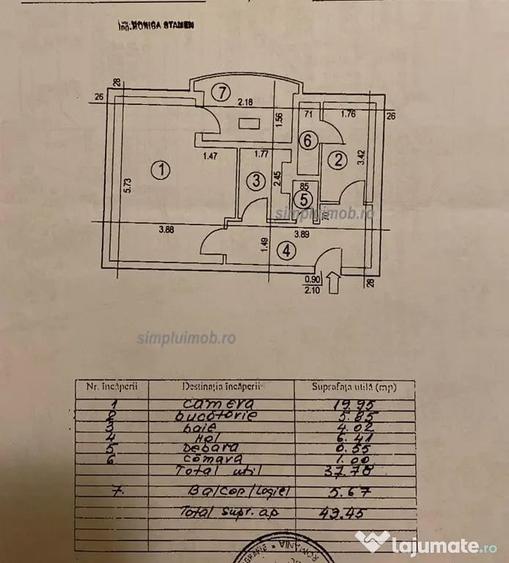 ing. MONICA STAMEN
28
26
7
2.18
1.56
71
1.76
26
6
2
3.42
1.47
1.77
1
3
2.45
85
5
5.73
simpluimob.ro
70
3.88
1.49
3.89
4
28
0.90
2.10
28
simpluimob.ro
Nr. încăperii Destinaţia încăperii Suprafaţa utilă (mp)
1 camera 19.95
2 bucatarie 5.85
3 baie 4.02
4 Hol 6.41
5 Debara 0.55
6 camara 1.00
Total util 37.78
7. Balcon/Logie 5.67
Total supr. ap 43.45
ROMANIA
lajumate.ro